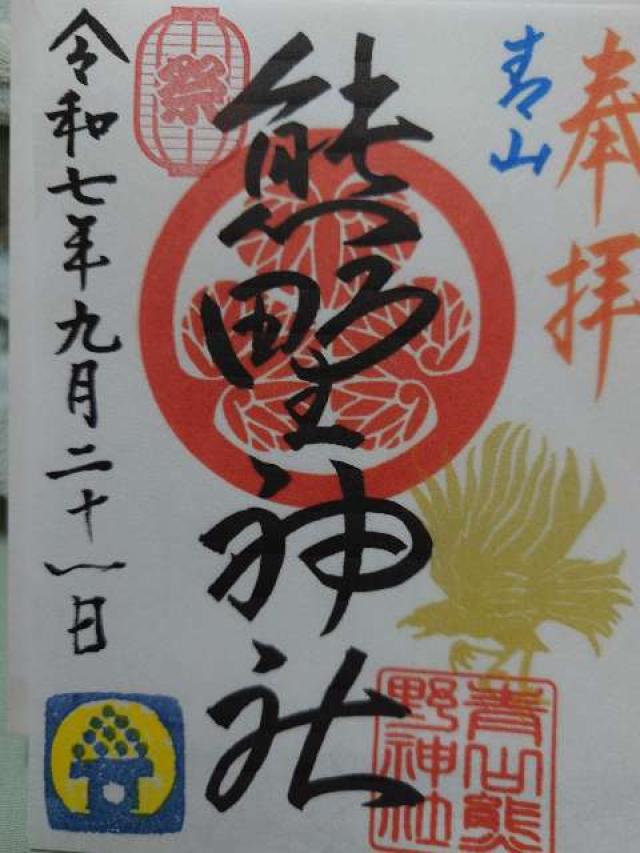 奉拝
青山
熊野神社
祭
令和七年九月二十一日
青山熊
野神社